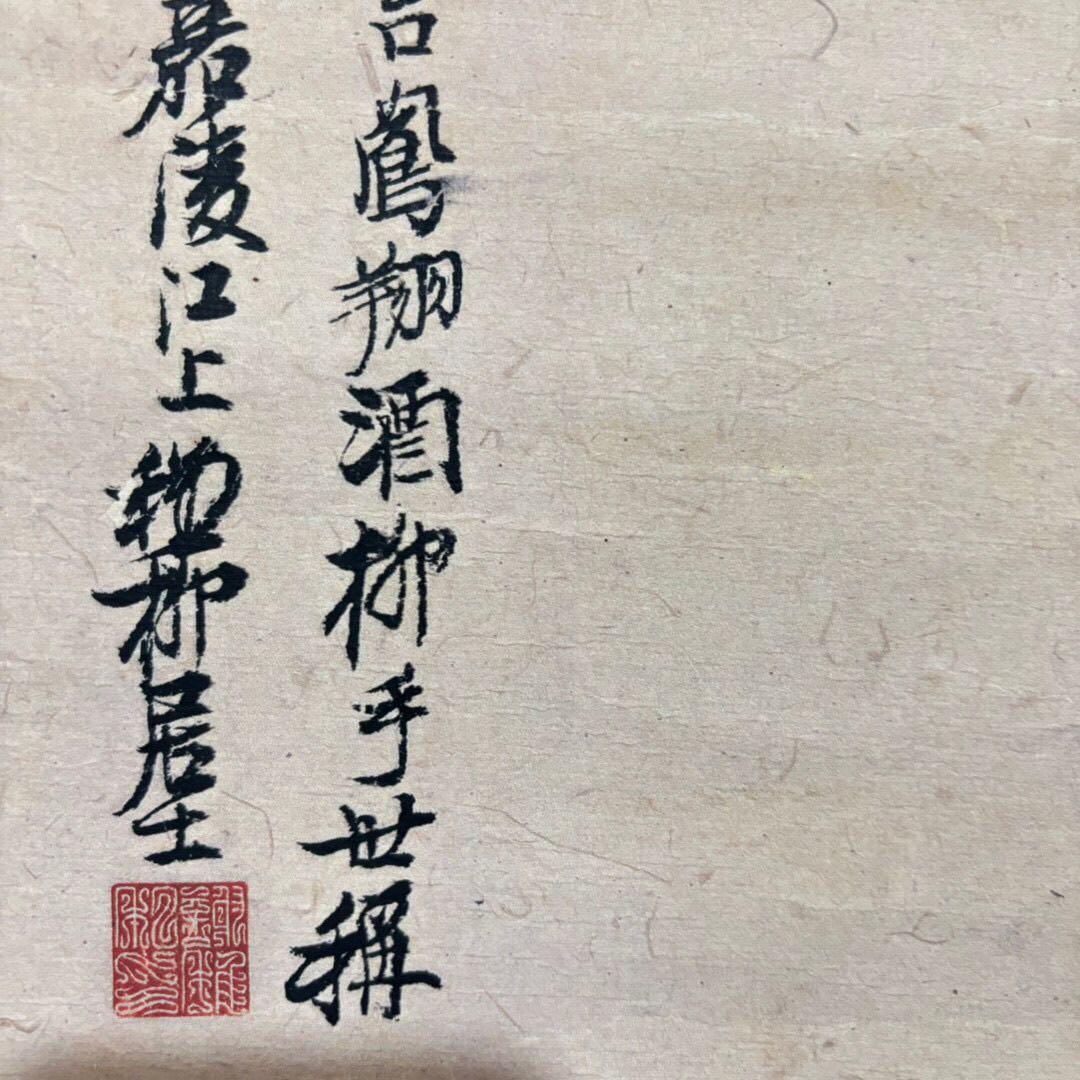 鳳翔酒柳手世稱
嘉陵江上柳居士